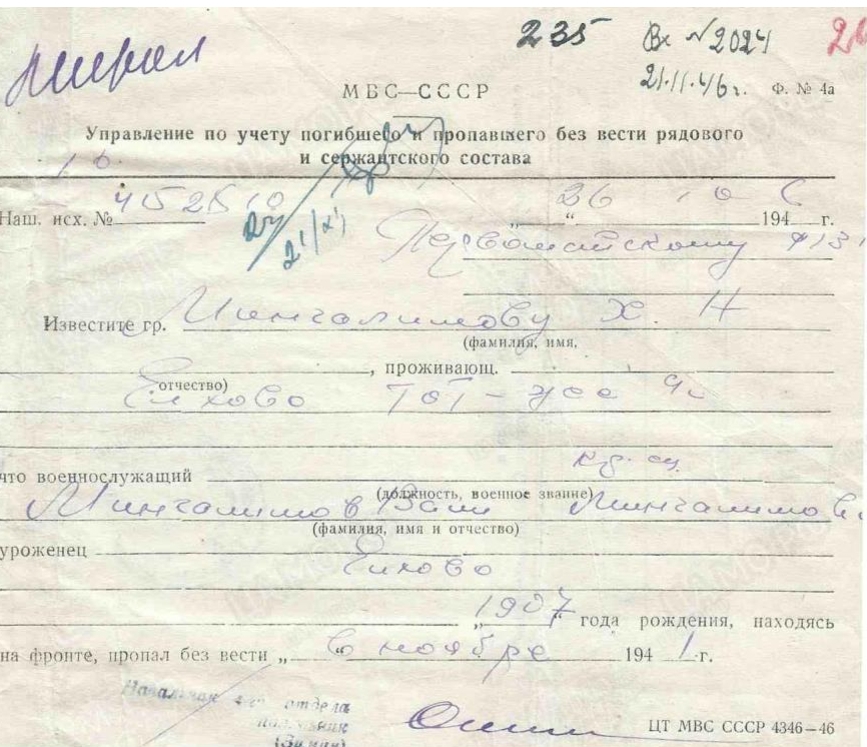 235 Вх №2024
21.11.46г. Ф. № 4а
МВС—СССР
Управление по учету погибшего и пропавшего без вести рядового
и сержантского состава
21/XI
Наш. исх. № 452510 „26“ 10 1946 г.
Первомайскому
Известите гр. Мингалимову Х. Н
(фамилия, имя,
, проживающ.
отчество)
Елхово тот-же
что военнослужащий
(должность, военное звание)
Мингалимов Вали Мингалимов
(фамилия, имя и отчество)
уроженец
Елхово
1907 года рождения, находясь
на фронте, пропал без вести „“ в ноябре 1941 г.
Начальник отдела
(Зимин)
ЦТ МВС СССР 4346—46